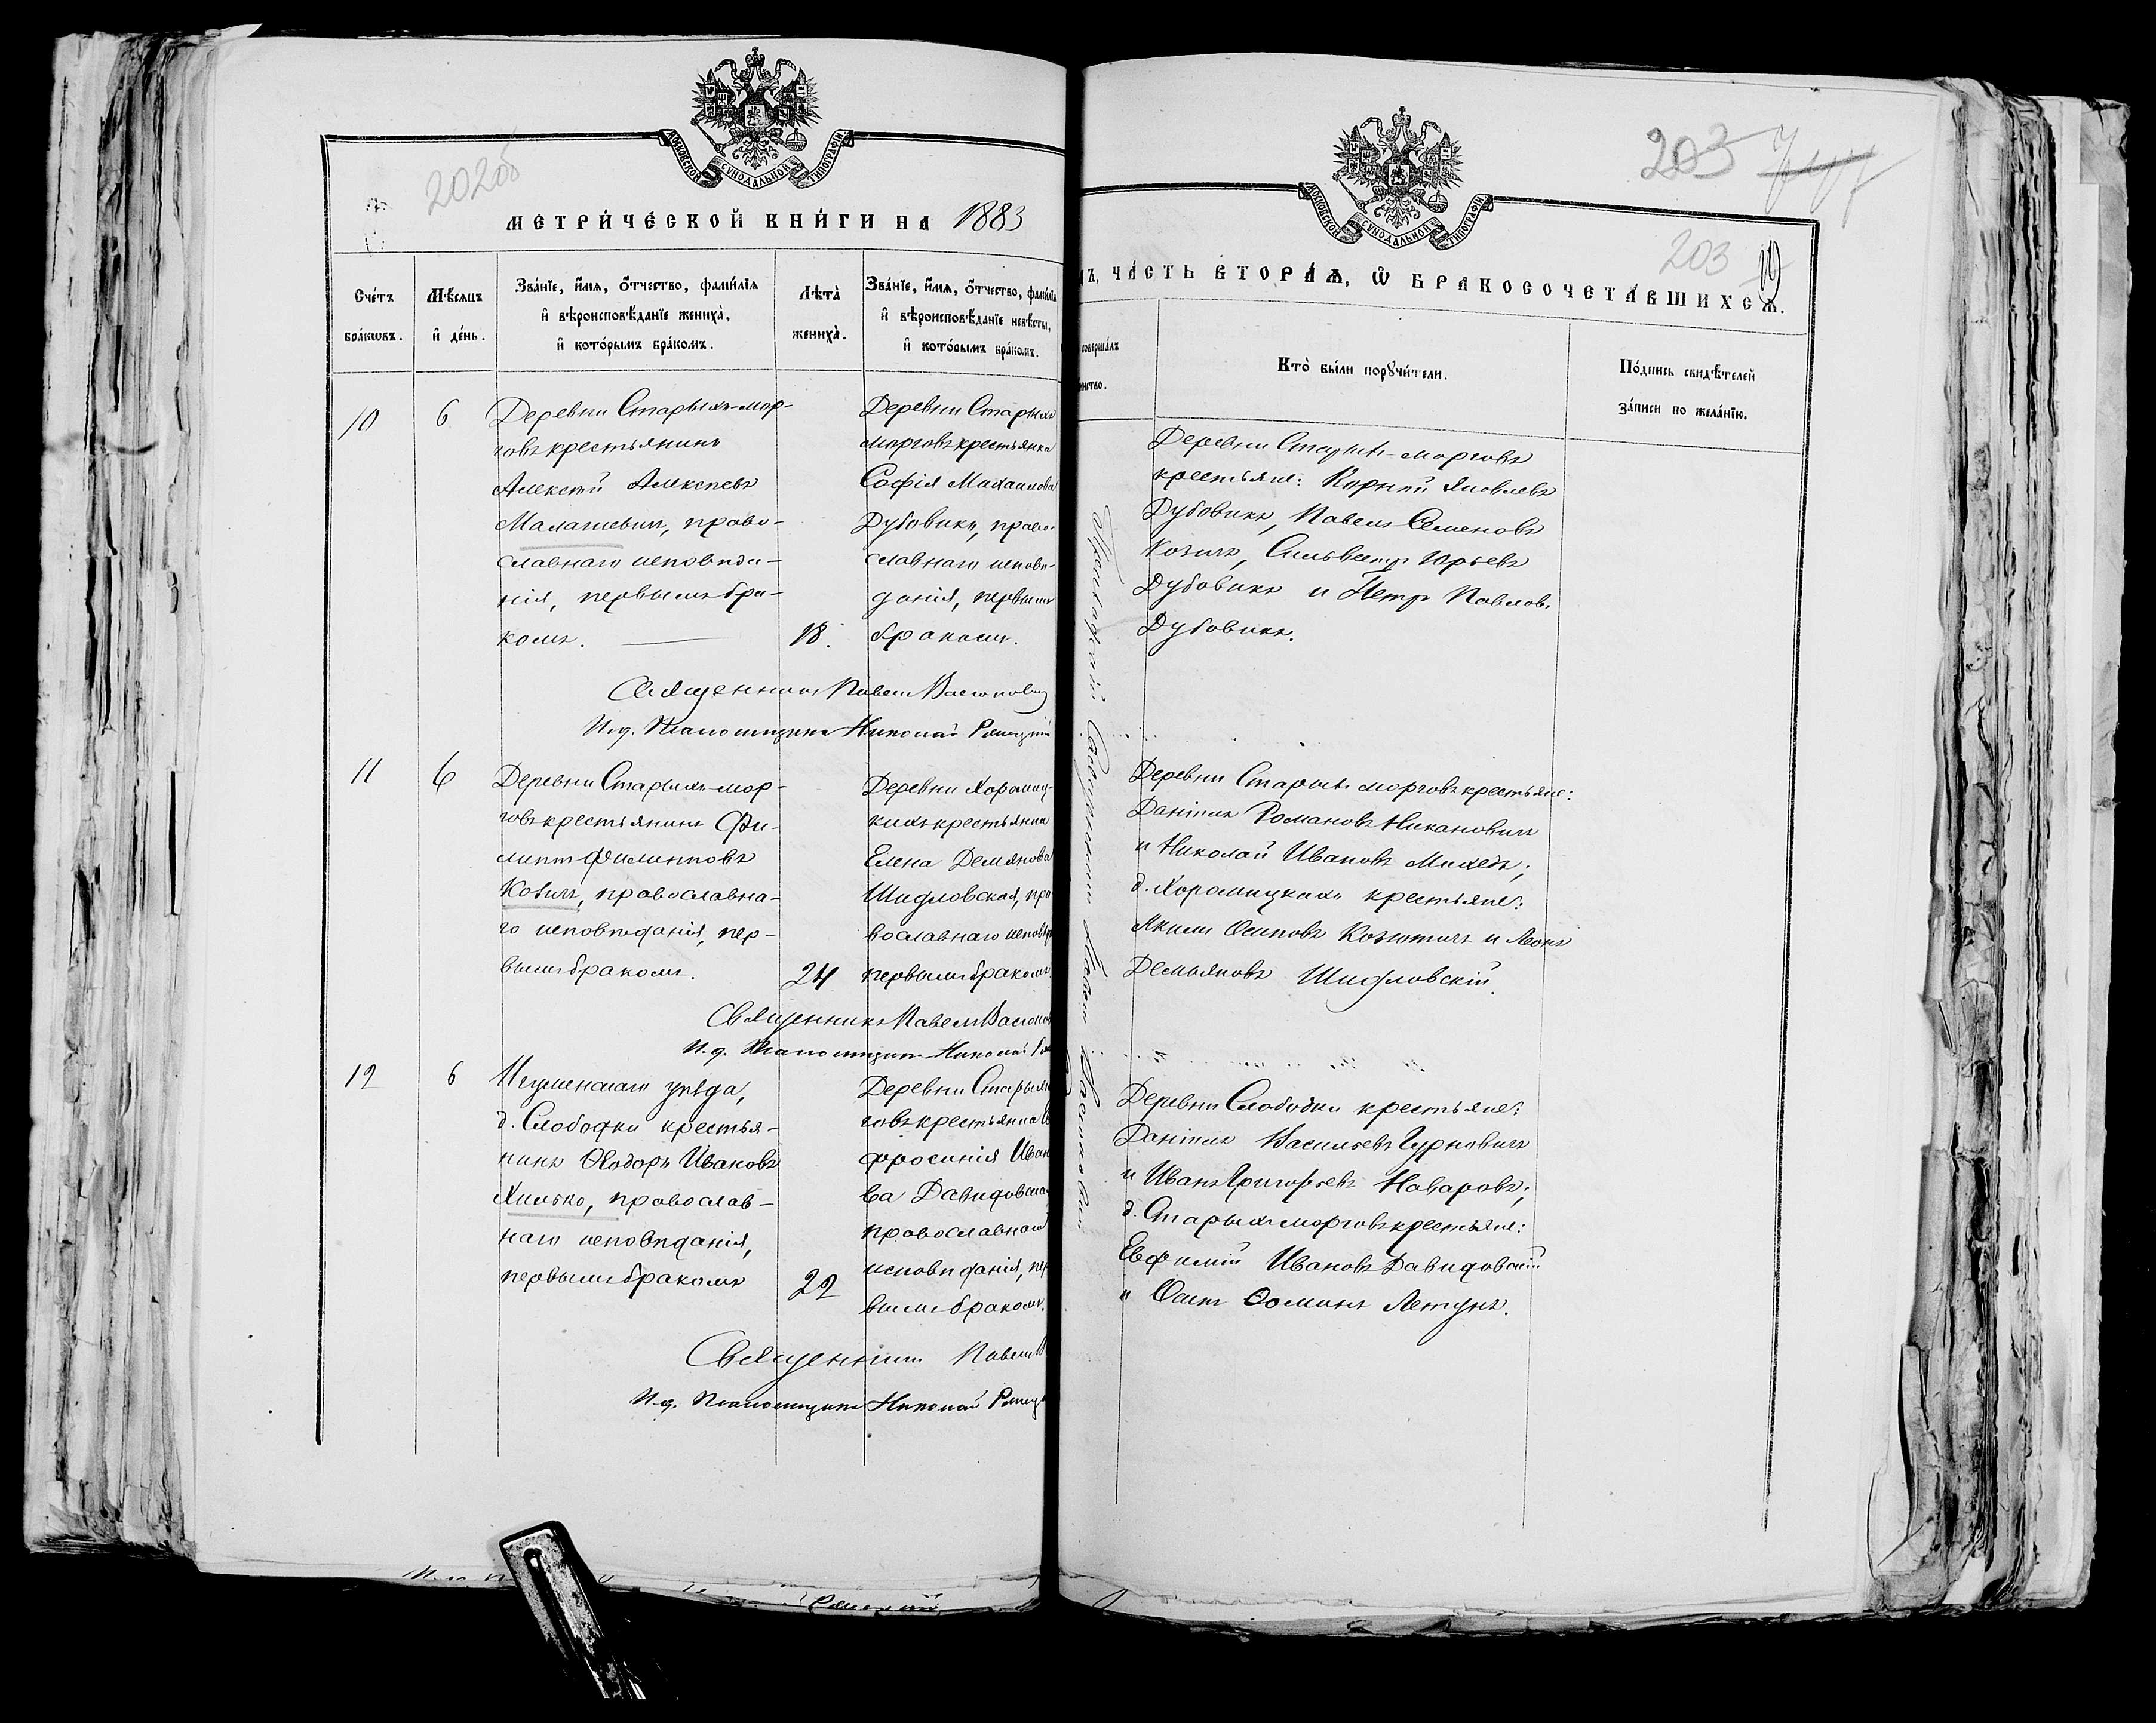 202об
МОСКОВСКОЙ СУНОДАЛЬНОЙ ТИПОГРАФІИ
МЕТРИ́ЧЕСКОЙ КНИ́ГИ НА 1883
Сче́тъ бра́кωвъ.
Мѣ́сяцъ и҆ де́нь.
Зва́нїе, и҆́мя, ѻ҆́тчество, фами́лїя и҆ вѣроисповѣ́данїе жениха̀, и҆ кото́рымъ бра́комъ.
Лѣта̀ жениха̀.
Зва́нїе, и҆́мя, ѻ҆́тчество, фами́лїя и҆ вѣроисповѣ́данїе невѣ́сты, и҆ кото́рымъ бра́комъ.
10
6
Деревни Старыхъ-мор-
говъ крестьянинъ
Алексѣй Алексѣевъ
Малашевичъ, право-
славнаго исповѣда-
нія, первымъ бра-
комъ.
18.
Деревни Старыхъ
морговъ крестьянка
Софія Михаилова
Дубовикъ, право-
славнаго исповѣ-
данія, первымъ
бракомъ.
Священникъ Павелъ
И.д. Псаломщика Николай
11
6
Деревни Старыхъ-мор-
говъ крестьянинъ Фи-
липпъ Филипповъ
Козичъ, православна-
го исповѣданія, пер-
вымъ бракомъ.
24
Деревни Хоромиц-
кихъ крестьянка
Елена Демянова
Шидловская, пра
вославнаго исповѣд
первымъ бракомъ.
Священникъ Павелъ
И.д. Псаломщика Николай
12
6
Игуменскаго уѣзда,
д. Слободки крестья-
нинъ Ѳеодоръ Ивановъ
Хилько, православ-
наго исповѣданія,
первымъ бракомъ
22
Деревни Старыхъ
говъ крестьянка
фросинія Иван
ва Давидовска
православнаго
исповѣданія, пер
вымъ бракомъ.
Священникъ Павелъ
И.д. Псаломщика Николай
203
МОСКОВСКОЙ СУНОДАЛЬНОЙ ТИПОГРАФІИ
203
19
ЧА́СТЬ ВТОРА́Я, Ѽ БРАКОСОЧЕТА́ВШИХСЯ.
соверша́лъ
инство.
Кто̀ бы́ли порꙋчи́тели.
По́дпись свидѣ́телей за́писи по жела́нїю.
Деревни Старыхъ-морговъ
крестьяне: Корнѣй Яковлевъ
Дубовикъ, Павелъ Семеновъ
Козичъ, Сильвестръ Юрьевъ
Дубовикъ и Петръ Павлов.
Дубовикъ.
Деревни Старыхъ морговъ крестьяне:
Даніилъ Романовъ Никановичъ
и Николай Ивановъ Михедъ;
д. Хоромицкихъ крестьяне:
Якимъ Осиповъ Козютичъ и Леонъ
Демьяновъ Шидловскій.
Деревни Слободки крестьяне:
Даніилъ Васильевъ Гурновичъ
и Иванъ Григорьевъ Назаровъ;
д. Старыхъ морговъ крестьяне:
Евфимій Ивановъ Давидовскій
и Осипъ Ѳоминъ Летунъ.